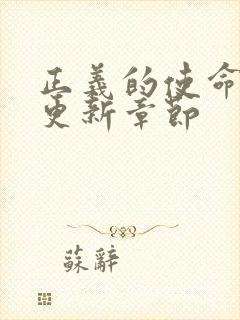 正義的使命
更新章節
蘇辭